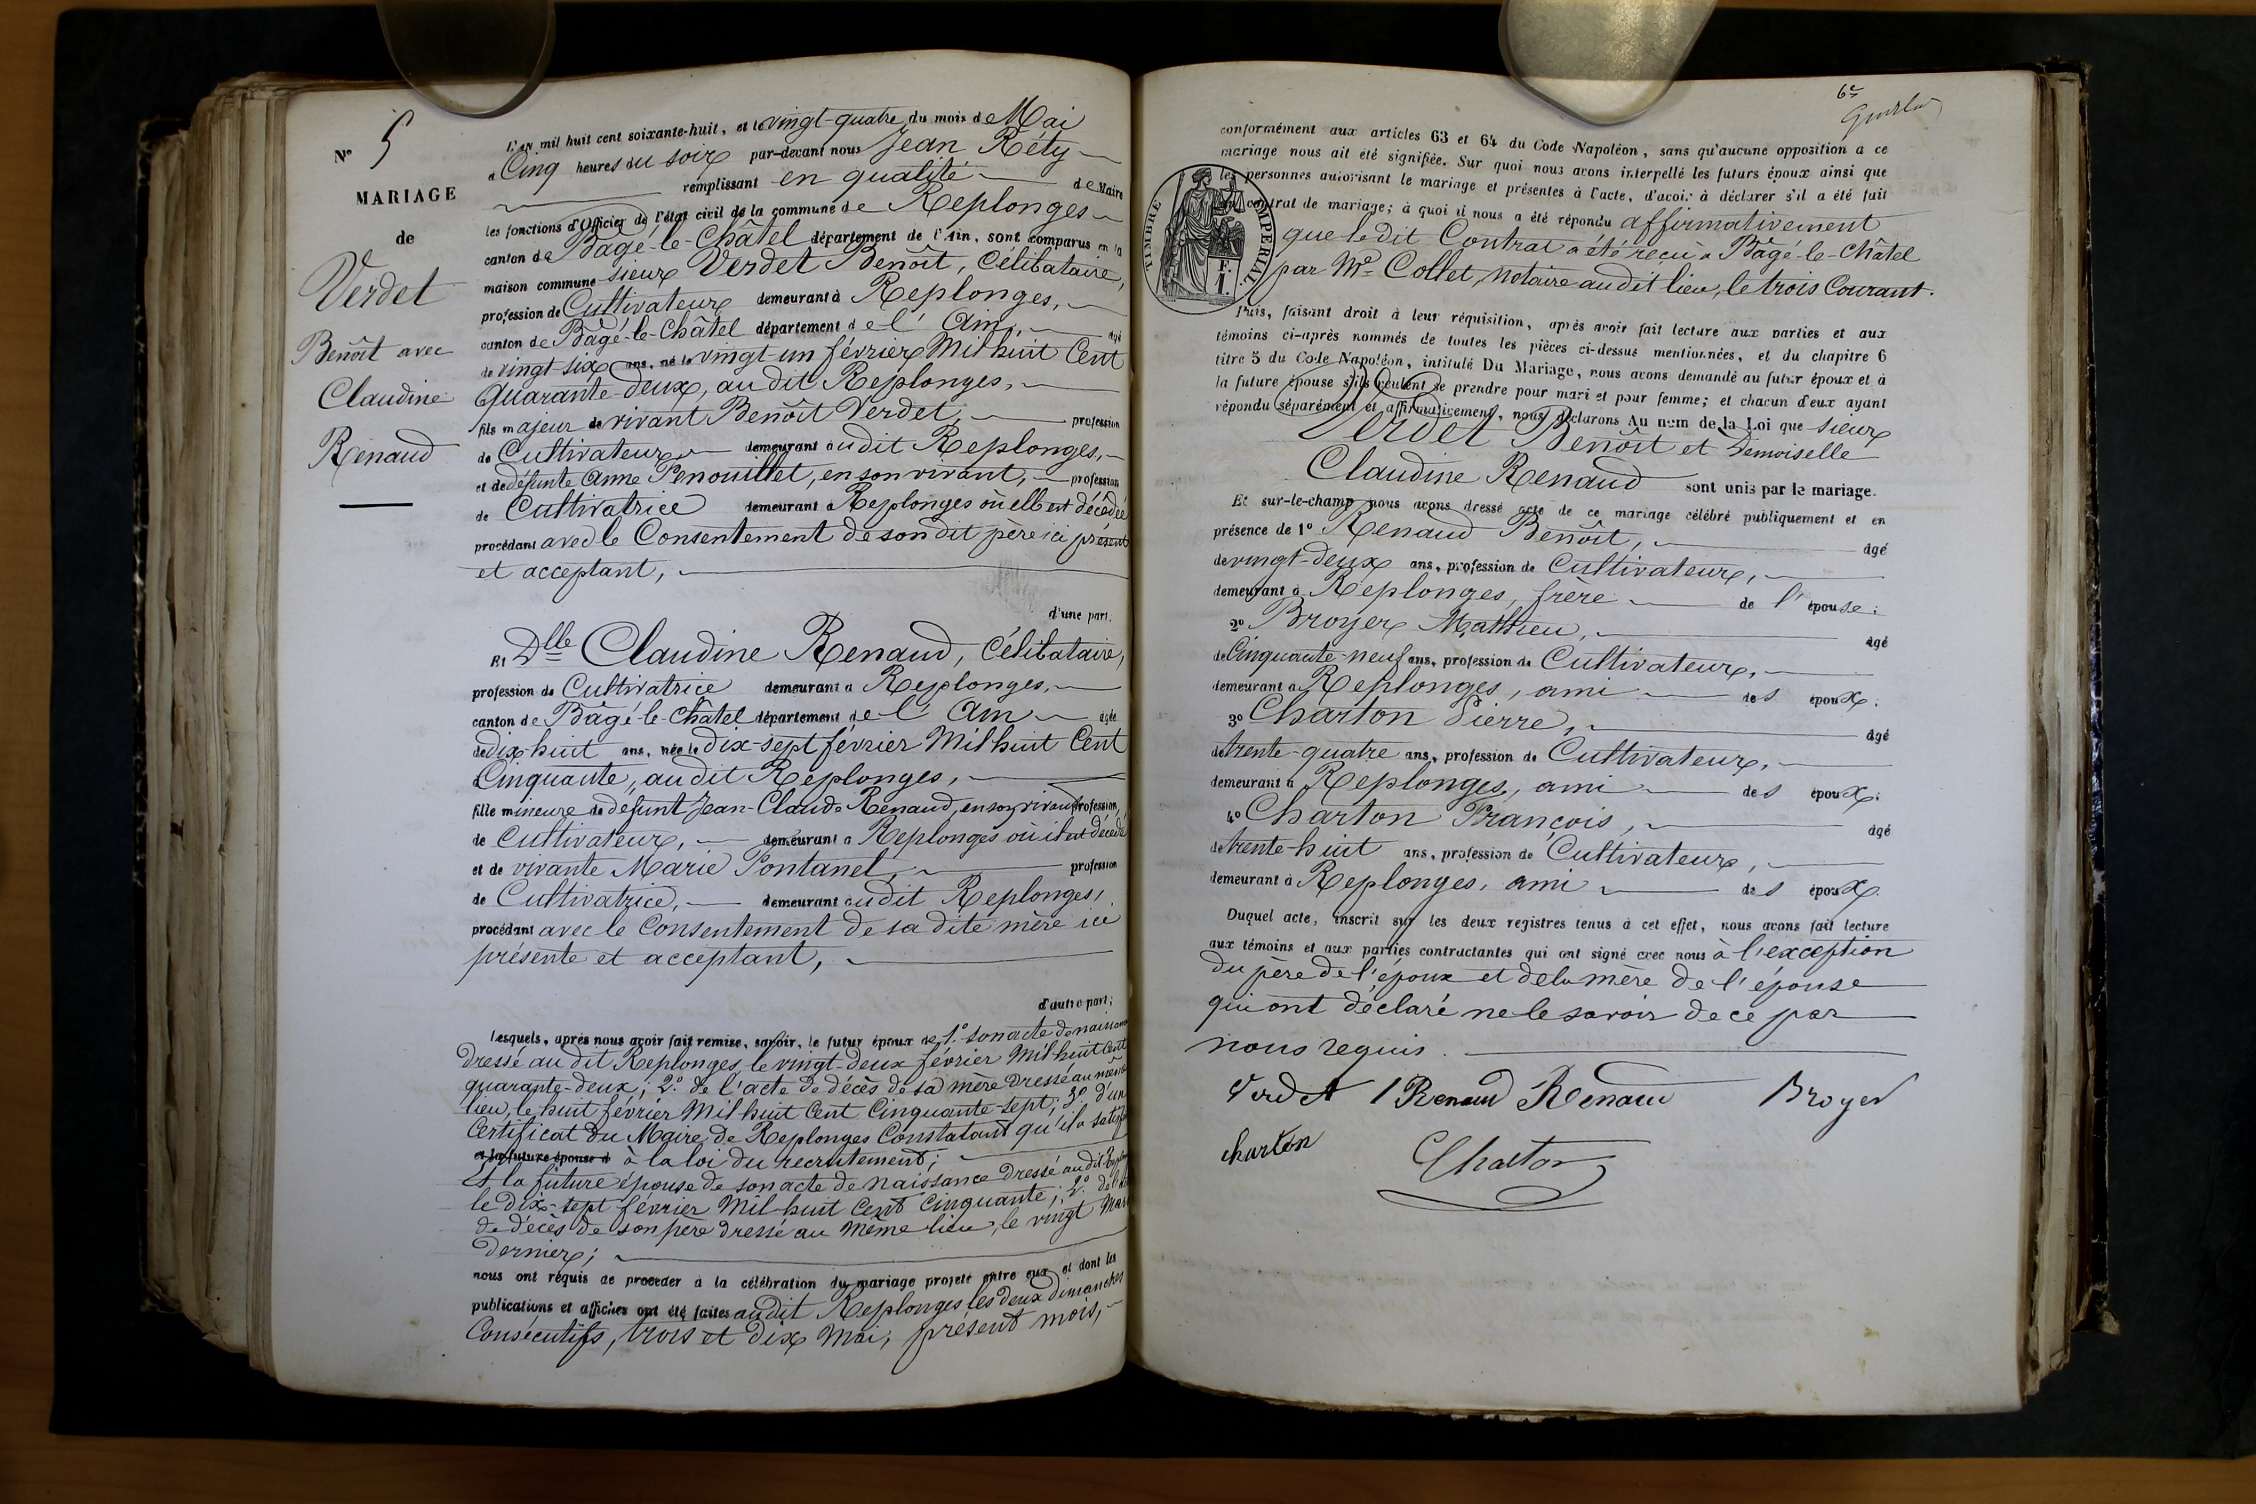 N° 5
MARIAGE
de
Verdet
Benoît avec
Claudine
Renaud
L'an mil huit cent soixante-huit, et le vingt-quatre du mois de Mai
a Cinq heures du soir par-devant nous Jean Réty
remplissant en qualité de Maire
les fonctions d'Officier de l'état civil de la commune de Replonges
canton de Bâgé-le-Châtel département de l'Ain, sont comparus en la
maison commune sieur Verdet Benoît, Célibataire,
profession de Cultivateur demeurant à Replonges,
canton de Bâgé-le-Châtel département de l'Ain, âgé
de vingt six ans, né le vingt-un février Mil huit Cent
Quarante-deux, au dit Replonges,
fils majeur de vivant Benoît Verdet, profession
de Cultivateur demeurant au dit Replonges,
et de défunte Anne Penouillet, en son vivant, profession
de Cultivatrice demeurant a Replonges où elle est décédée
procédant avec le Consentement de son dit père ici présent
et acceptant,
d'une part.
Et Dlle Claudine Renaud, Célibataire,
profession de Cultivatrice demeurant a Replonges,
canton de Bâgé-le-Châtel département de l'Ain âgée
de dix-huit ans, née le Dix-sept février Mil huit Cent
Cinquante, au dit Replonges,
fille mineure de défunt Jean-Claude Renaud, en son vivant profession
de Cultivateur, demeurant a Replonges où il est décédé
et de vivante Marie Pontanel, profession
de Cultivatrice, demeurant au dit Replonges,
procédant avec le Consentement de sa dite mère ici
présente et acceptant,
d'autre part;
Lesquels, après nous avoir fait remise, savoir, le futur époux de 1° son acte de naissance
Dressé au dit Replonges le vingt-deux février Mil huit Cent
quarante-deux; 2° de l'acte de décès de sa mère dressé au même
lieu, le huit février Mil huit Cent Cinquante-sept; 3° d'un
Certificat du Maire de Replonges Constatant qu'il a satisfait
et la future épouse d à la loi du recrutement;
Et la future épouse de son acte de naissance dressé au dit Replonges
le dix-sept février Mil-huit Cent Cinquante; 2° de l'acte
de décès de son père dressé au même lieu, le vingt Mars
Dernier;
nous ont requis de procéder à la célébration du mariage projeté entre eux et dont les
publications et affiches ont été faites au dit Replonges les deux dimanches
Consécutifs, trois et dix Mai, présent mois,
6e
conformément aux articles 63 et 64 du Code Napoléon, sans qu'aucune opposition a ce
mariage nous ait été signifiée. Sur quoi nous avons interpellé les futurs époux ainsi que
les personnes autorisant le mariage et présentes à l'acte, d'avoir à déclarer s'il a été fait
un contrat de mariage; à quoi il nous a été répondu affirmativement
que le dit Contrat a été reçu à Bâgé-le-Châtel
par Me Collet, notaire au dit lieu, le trois Courant.
TIMBRE IMPERIAL.
F.
I.
Puis, faisant droit à leur réquisition, après avoir fait lecture aux parties et aux
témoins ci-après nommés de toutes les pièces ci-dessus mentionnées, et du chapitre 6
titre 5 du Code Napoléon, intitulé Du Mariage, nous avons demandé au futur époux et à
la future épouse s'ils veulent se prendre pour mari et pour femme; et chacun d'eux ayant
répondu séparément et affirmativement, nous déclarons Au nom de la Loi que sieur
Verdet Benoît et Demoiselle
Claudine Renaud sont unis par le mariage.
Et sur-le-champ nous avons dressé acte de ce mariage célébré publiquement et en
présence de 1° Renaud Benoît, âgé
de vingt-deux ans, profession de Cultivateur,
demeurant à Replonges, frère de l'épouse;
2° Broyer Mathieu, âgé
de Cinquante-neuf ans, profession de Cultivateur,
demeurant a Replonges, ami des époux;
3° Charton Pierre, âgé
de trente-quatre ans, profession de Cultivateur,
demeurant à Replonges, ami des époux;
4° Charton François, âgé
de trente-huit ans, profession de Cultivateur,
demeurant à Replonges, ami des époux.
Duquel acte, inscrit sur les deux registres tenus à cet effet, nous avons fait lecture
aux témoins et aux parties contractantes qui ont signé avec nous à l'exception
du père de l'époux et de la mère de l'épouse
qui ont déclaré ne le savoir de ce par
nous requis.
Verdet Renaud Renaud Broyer
charton Charton